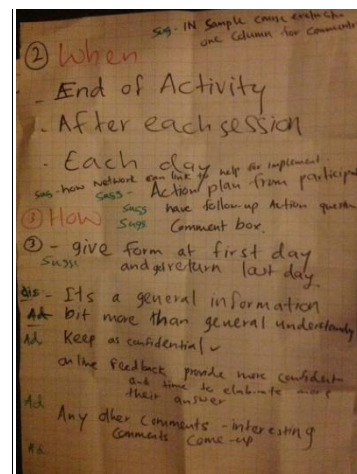 sug - IN sample course evaluation
one column for comments
② When
- End of Activity
- After each session
- Each day
sug - how network can link to help for implement.
sugs - Action plan from particip
③ How sugs have follow-up Action question
Sugs Comment box.
③ - give form at first day
Sugs and get return last day
dis - Its a general information
Ad bit more than general understandy
Ad Keep as confidential ✓
online feedback provide more confident
and time to elabrate more
Ad their answer
Any other comments - interesting
comments come-up
Ad